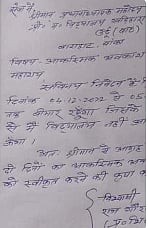 सेवा में,
श्रीमान प्रधानाध्यापक महोदय
विद्यालय
बाराहाट, बांका
विषय आकस्मिक अवकाश
महाशय
सविनय निवेदन है कि
दिनांक 04.12.2022 से 05
तक बीमार रहूँगा जिसके
से मैं विद्यालय नहीं आ
ऊंगा।
अतः श्रीमान से आग्रह
दो दिनों का आकस्मिक अव
को स्वीकृत करने की कृपा क
विश्वासी